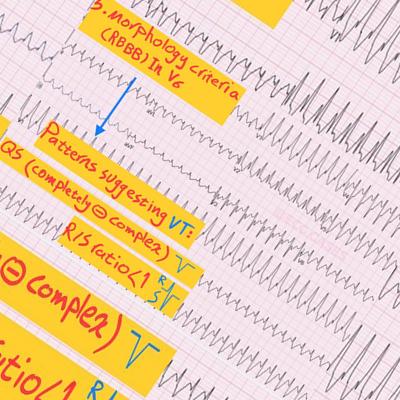 5. morphology criteria
(RBBB) In V6
Patterns suggesting VT:
QS (completely ⊖ complex)
R/S ratio<1 R S
⊖ complex)
atio<1 R